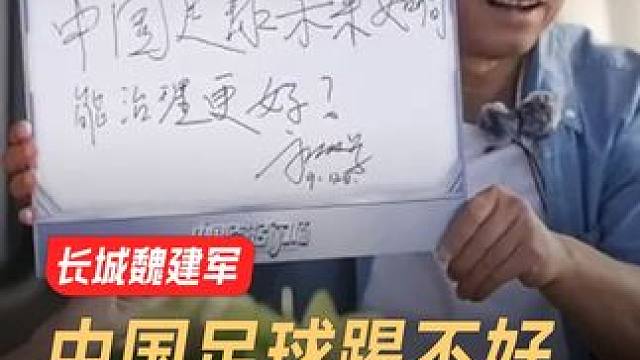 中国足球未来如何
能治理更好？
长城魏建军
中国足球踢不好